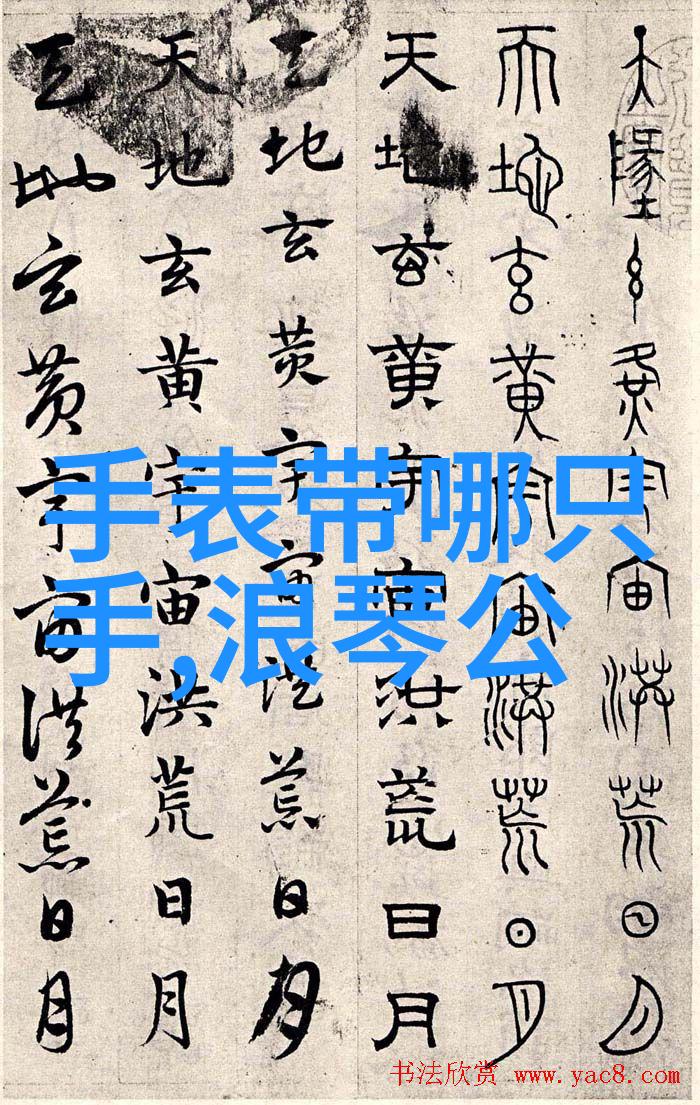 天墬玄黄宇宙洪荒日月
天地玄黄宇宙洪荒日月
天地玄黄宇宙洪荒日月
天地玄黄宇宙洪荒日月
天地玄黄宇宙洪荒日月
天地玄黄宇宙洪荒日月
手表带哪只
手,浪琴公
书法欣赏 www.yac8.com